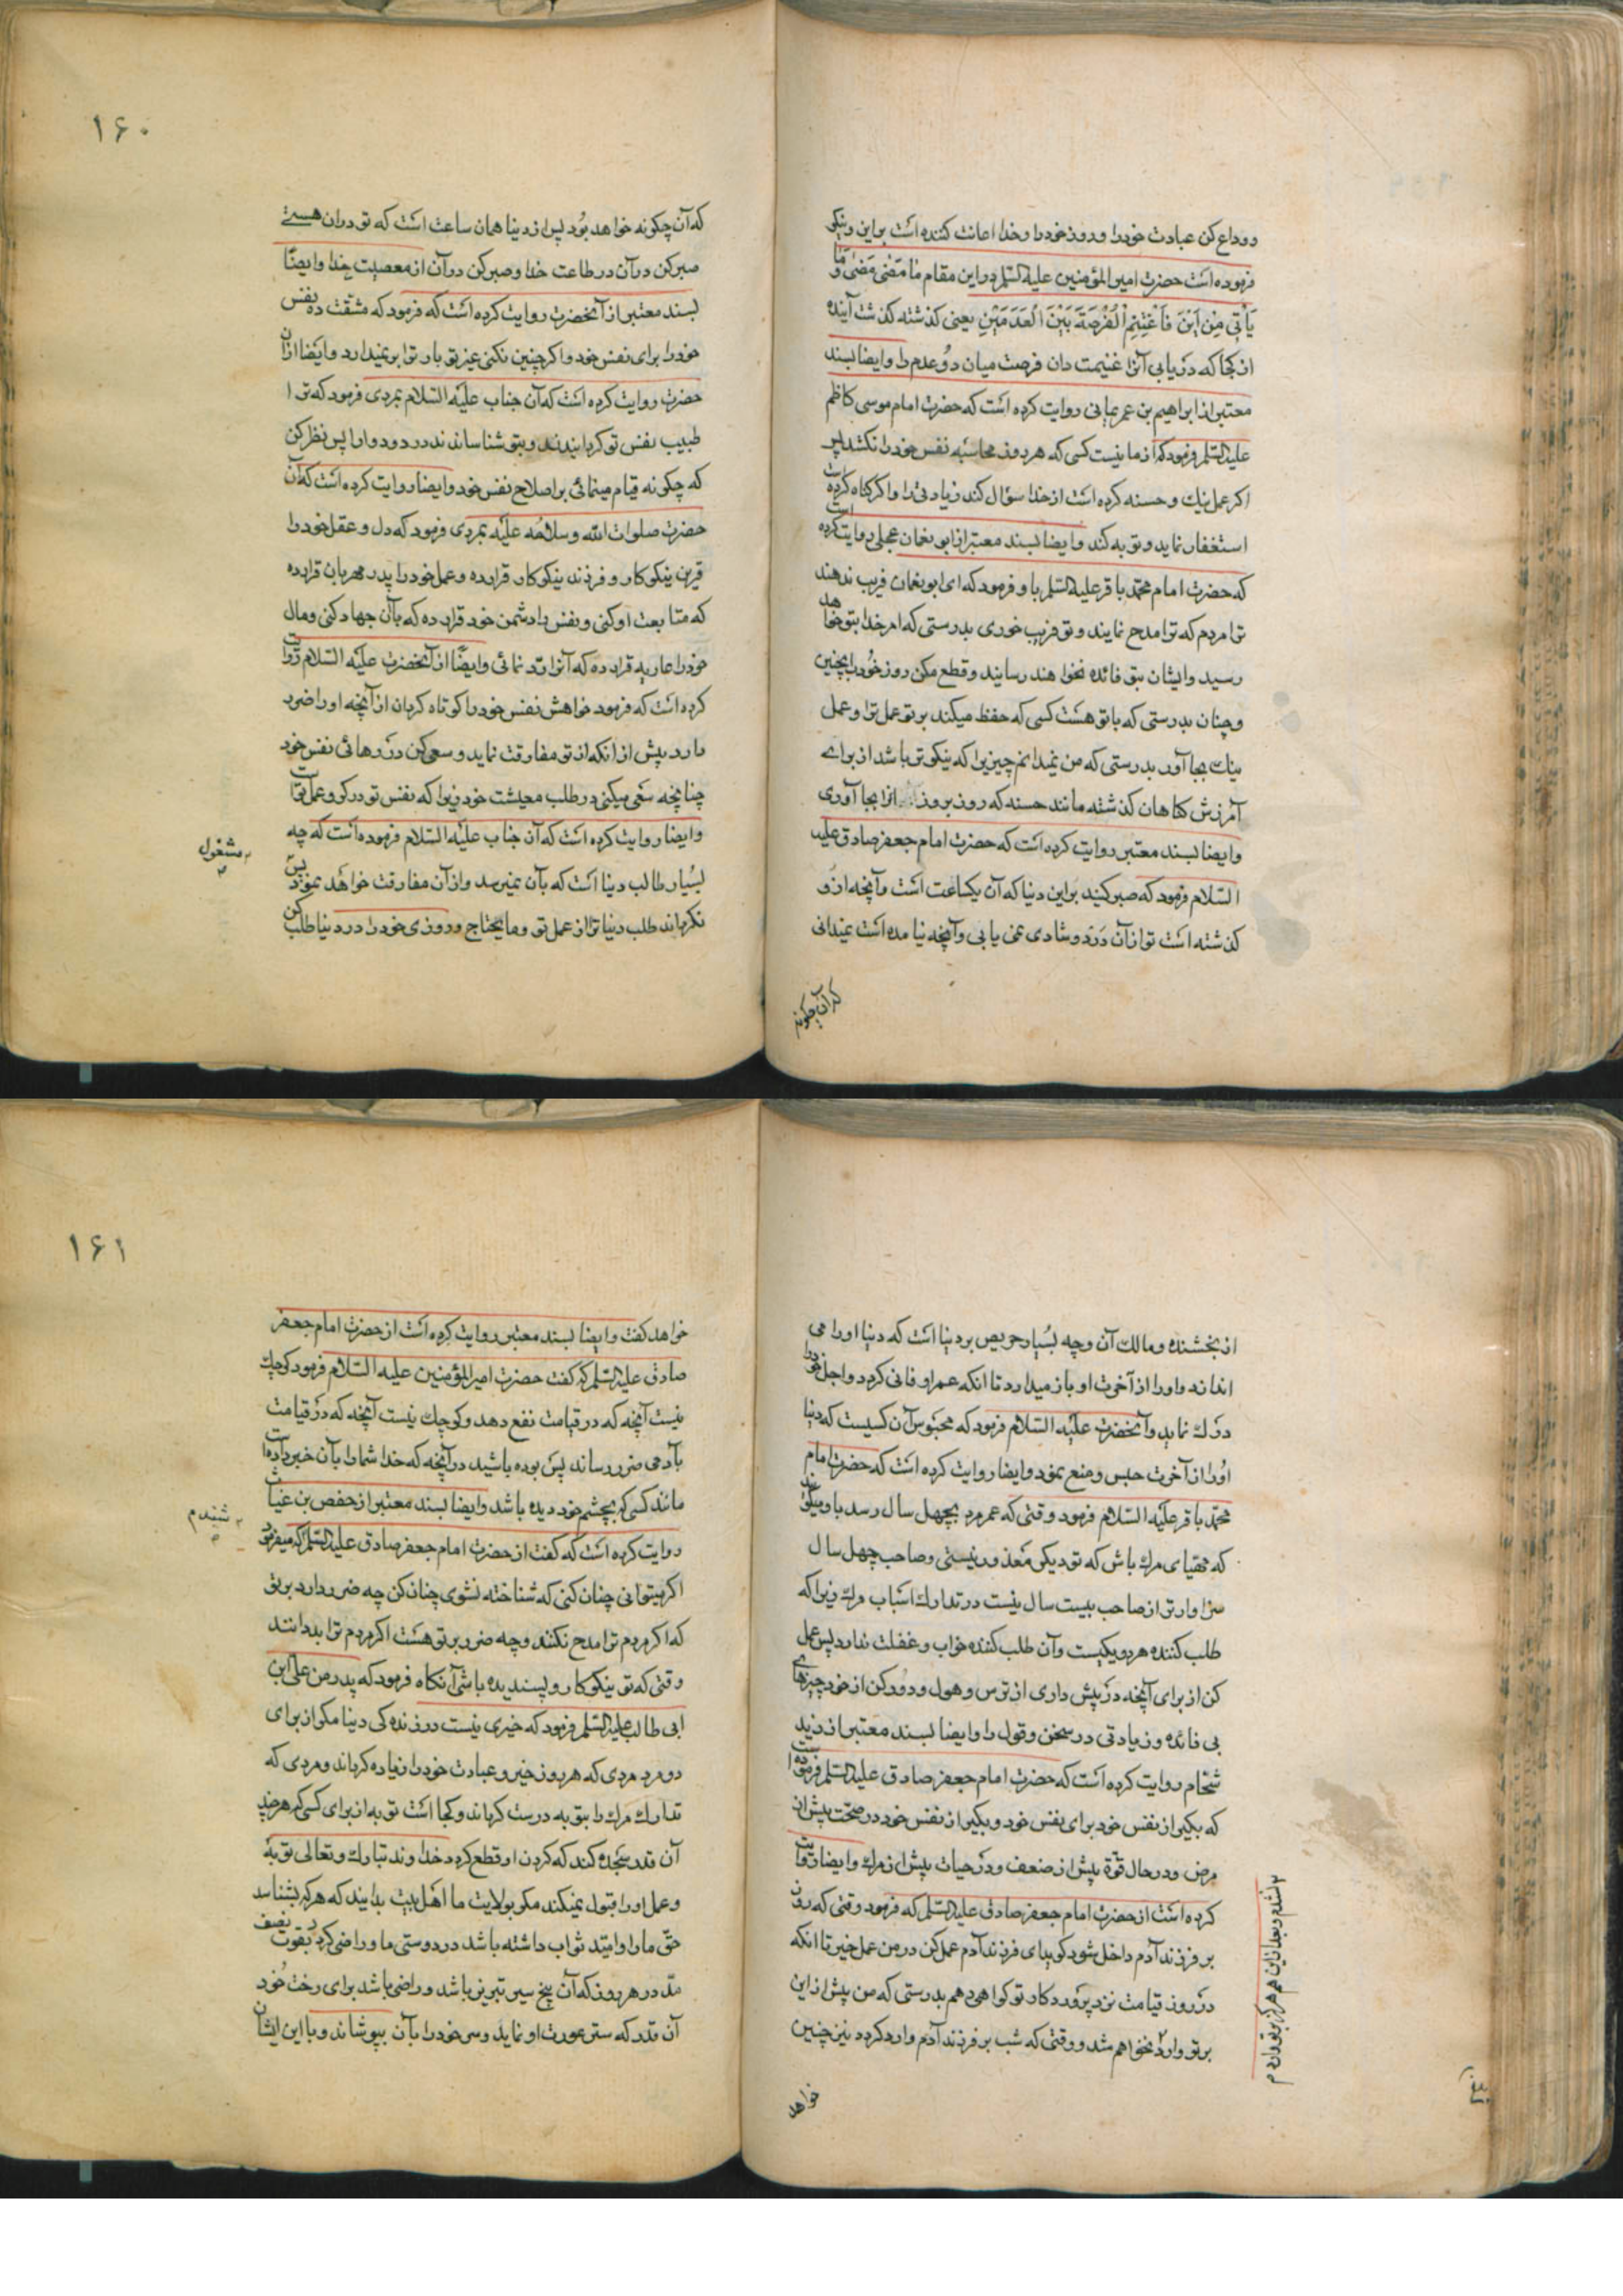 و وداع کن عبادت خود را و روز خود را و خدا اعانت کننده است بر این و نیکو
فرموده است حضرت امیر المؤمنین علیه السلم در این مقام مٰا مَضٰی مَضٰی وَ مٰا
یَأْتِی مِنْ اَیْنَ فَاغْتَنِمِ الْفُرْصَةَ بَیْنَ الْعَدَمَیْنِ یعنی کذشته کذشت آینده
از کجا که دریابی آنرا غنیمت دان فرصت میان دو عدم را وایضا بسند
معتبر از ابراهیم بن عمر یمانی روایت کرده است که حضرت امام موسی کاظم
علیه السلم فرمود که از ما نیست کسی که هر روز محاسبه نفس خود را نکند پس
اکر عمل نیك و حسنه کرده است از خدا سؤال کند زیادتی را و اکر کناه کرده است
استغفار نماید و توبه کند وایضا بسند معتبر از ابو نعمان عجلی روایت کرده
که حضرت امام محمد باقر علیه السلم باو فرمود که ای ابو نعمان فریب ندهند
ترا مردم که ترا مدح نمایند و تو فریب خوری بدرستی که امر خدا بتو خواهد
رسید وایشان بتو فائده نخواهند رسانید و قطع مکن روز خود را بچنین
و چنان بدرستی که با تو هست کسی که حفظ میکند بر تو عمل ترا و عمل
نیك بجا آور بدرستی که من نمیدانم چیزیرا که نیکوتر باشد از برای
آمرزش کناهان کذشته مانند حسنه که روز بروز انرا بجا آوری
وایضا بسند معتبر روایت کرده است که حضرت امام جعفر صادق علیه
السلام فرمود که صبر کنید بر این دنیا که آن یکساعت است و آنچه از او
کذشته است تو از آن درد و شادی نمی یابی و آنچه نیامده است نمیدانی
که آن چکونه
۱۶۰
که آن چکونه خواهد بود پس از دنیا همان ساعت است که تو در ان هستی
صبر کن در آن در طاعت خدا و صبر کن در آن از معصیت خدا وایضًا
بسند معتبر از آنحضرت روایت کرده است که فرمود که مشقت ده نفس
خود را برای نفس خود و اکر چنین نکنی غیر تو بار ترا بر نمیدارد وایضا از ان
حضرت روایت کرده است که آن جناب علیه السلام بمردی فرمود که ترا
طبیب نفس تو کردانیدند و بتو شناساندند درد و دوا را پس نظر کن
که چکونه قیام مینمائی بر اصلاح نفس خود وایضا روایت کرده است که آن
حضرت صلوات الله و سلامه علیه بمردی فرمود که دل و عقل خود را
قرین نیکو کار و فرزند نیکو کار قرار ده و عمل خود را پدر مهربان قرار ده
که متابعت او کنی و نفس را دشمن خود قرار ده که بآن جهاد کنی و مال
خود را عاریه قرار ده که آنرا رد نمائی وایضًا از آنحضرت علیه السلام روایت
کرده است که فرمود خواهش نفس خود را کوتاه کردان از آنچه او را ضرر
دارد پیش از انکه از تو مفارقت نماید و سعی کن در رهائی نفس خود
چنانچه سعی میکنی در طلب معیشت خود زیرا که نفس تو در کرو عمل تو است
وایضا روایت کرده است که آن جناب علیه السلام فرموده است که چه
بسیار طالب دنیا است که بآن نمیرسد و از آن مفارقت خواهد نمود پس
مشغول
نکرداند طلب دنیا ترا از عمل تو و ما یحتاج و روزی خود را در دنیا طلب کن
از بخشنده و مالك آن و چه بسیار حریص بر دنیا است که دنیا او را می
اندازد و او را از آخرت او باز میدارد تا انکه عمر او فانی کردد و اجل خود را
درك نماید و آنحضرت علیه السلام فرمود که محبوس آن کسیست که دنیا
او را از آخرت حبس و منع نمود وایضا روایت کرده است که حضرت امام
محمد باقر علیه السلام فرمود وقتی که عمر مرد بچهل سال رسد باو میکویند
که مهیای مرك باش که تو دیکر معذور نیستی و صاحب چهل سال
سزاوارتر از صاحب بیست سال نیست در تدارك اسباب مرك زیرا که
طلب کننده هر دو یکیست و آن طلب کننده خواب و غفلت ندارد پس عمل
کن از برای آنچه در پیش داری از ترس و هول و دور کن از خود چیزهای
بی فائده و زیادتی در سخن و قول را وایضا بسند معتبر از زید
شحام روایت کرده است که حضرت امام جعفر صادق علیه السلم فرموده است
که بکیر از نفس خود برای نفس خود و بکیر از نفس خود در صحت پیش از
مرض و در حال قوة پیش از ضعف و در حیات پیش از مرك وایضا روایت
کرده است از حضرت امام جعفر صادق علیه السلم که فرمود وقتی که روز
بر فرزند آدم داخل شود کوید ای فرزند آدم عمل کن در من عمل خیر تا انکه
در روز قیامت نزد پروردکار تو کواهی دهم بدرستی که من پیش از این
بر تو وارد نخواهم شد و وقتی که شب بر فرزند آدم وارد کردد نیز چنین
نشدم و بعد از این هم هرکز بر تو وارد
خواهد
۱۶۱
خواهد کفت وایضا بسند معتبر روایت کرده است از حضرت امام جعفر
صادق علیه السلم که کفت حضرت امیر المؤمنین علیه السلام فرمود کوچك
نیست آنچه که در قیامت نفع دهد و کوچك نیست آنچه که در قیامت
بآدمی ضرر رساند پس بوده باشید در آنچه که خدا شما را بآن خبر داده است
مانند کسی که بچشم خود دیده باشد وایضا بسند معتبر از حفص بن غیاث
شنیدم
روایت کرده است که کفت از حضرت امام جعفر صادق علیه السلم که میفرمود
اکر میتوانی چنان کنی که شناخته نشوی چنان کن چه ضرر دارد بر تو
که اکر مردم ترا مدح نکنند و چه ضرر بر تو هست اکر مردم ترا بد دانند
وقتی که تو نیکو کار و پسندیده باشی آنکاه فرمود که پدر من علی ابن
ابی طالب علیه السلم فرمود که خیری نیست در زنده کی دنیا مکر از برای
دو مرد مردی که هر روز خیر و عبادت خود را زیاده کرداند و مردی که
تدارك مرك را بتوبه درست کرداند و کجا است توبه از برای کسی که هر چند
آن قدر سجده کند که کردن او قطع کردد خداوند تبارك و تعالی توبهٔ
و عمل او را قبول نمیکند مکر بولایت ما اهل بیت بدانید که هر که بشناسد
حق ما را و امید ثواب داشته باشد در دوستی ما و راضی کردد بقوت نصف
مد در هر روز که آن پنج سیر تبریز باشد و راضی باشد برای رخت خود
آن قدر که ستر عورت او نماید و سر خود را بآن بپوشاند و با این ایشان